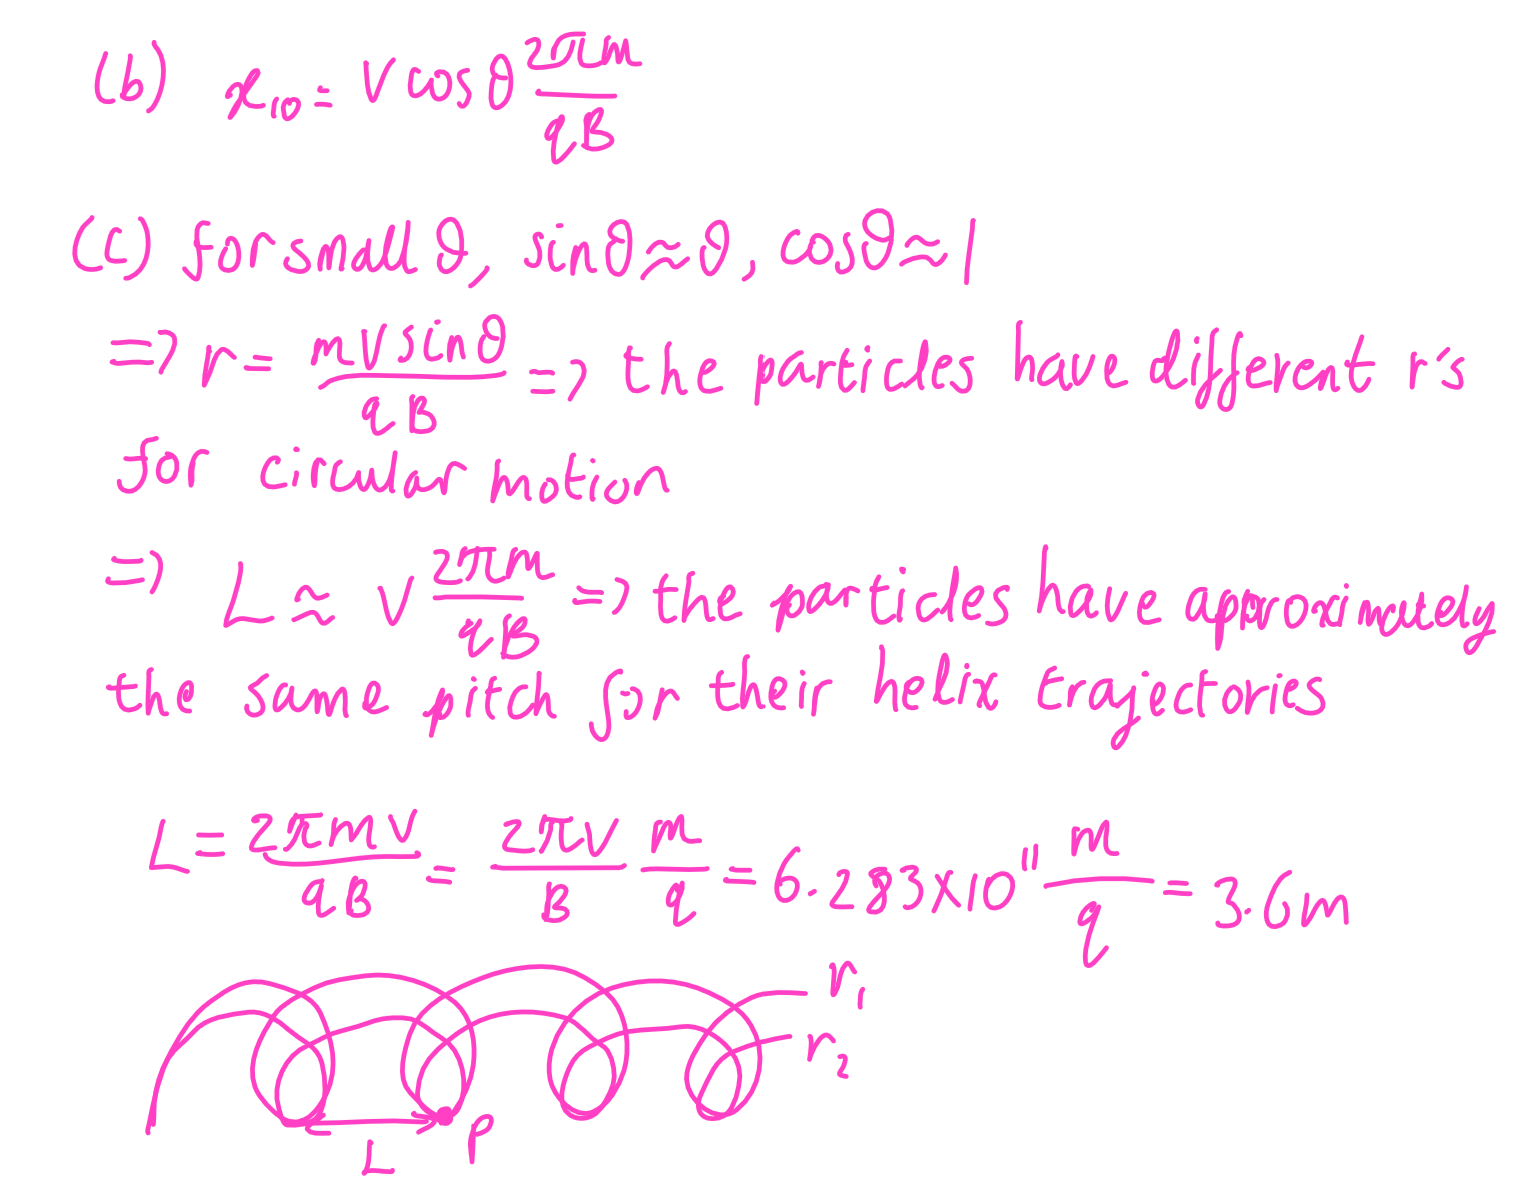 (b) x₁₀ = v cosθ 2πm/qB
(c) for small θ, sinθ≈θ, cosθ≈1
=> r = mvsinθ/qB => the particles have different r's
for circular motion
=> L ≈ v 2πm/qB => the particles have approximately
the same pitch for their helix trajectories
L = 2πmv/qB = 2πv/B m/q = 6.283×10¹¹ m/q = 3.6m
r₁
r₂
L
P